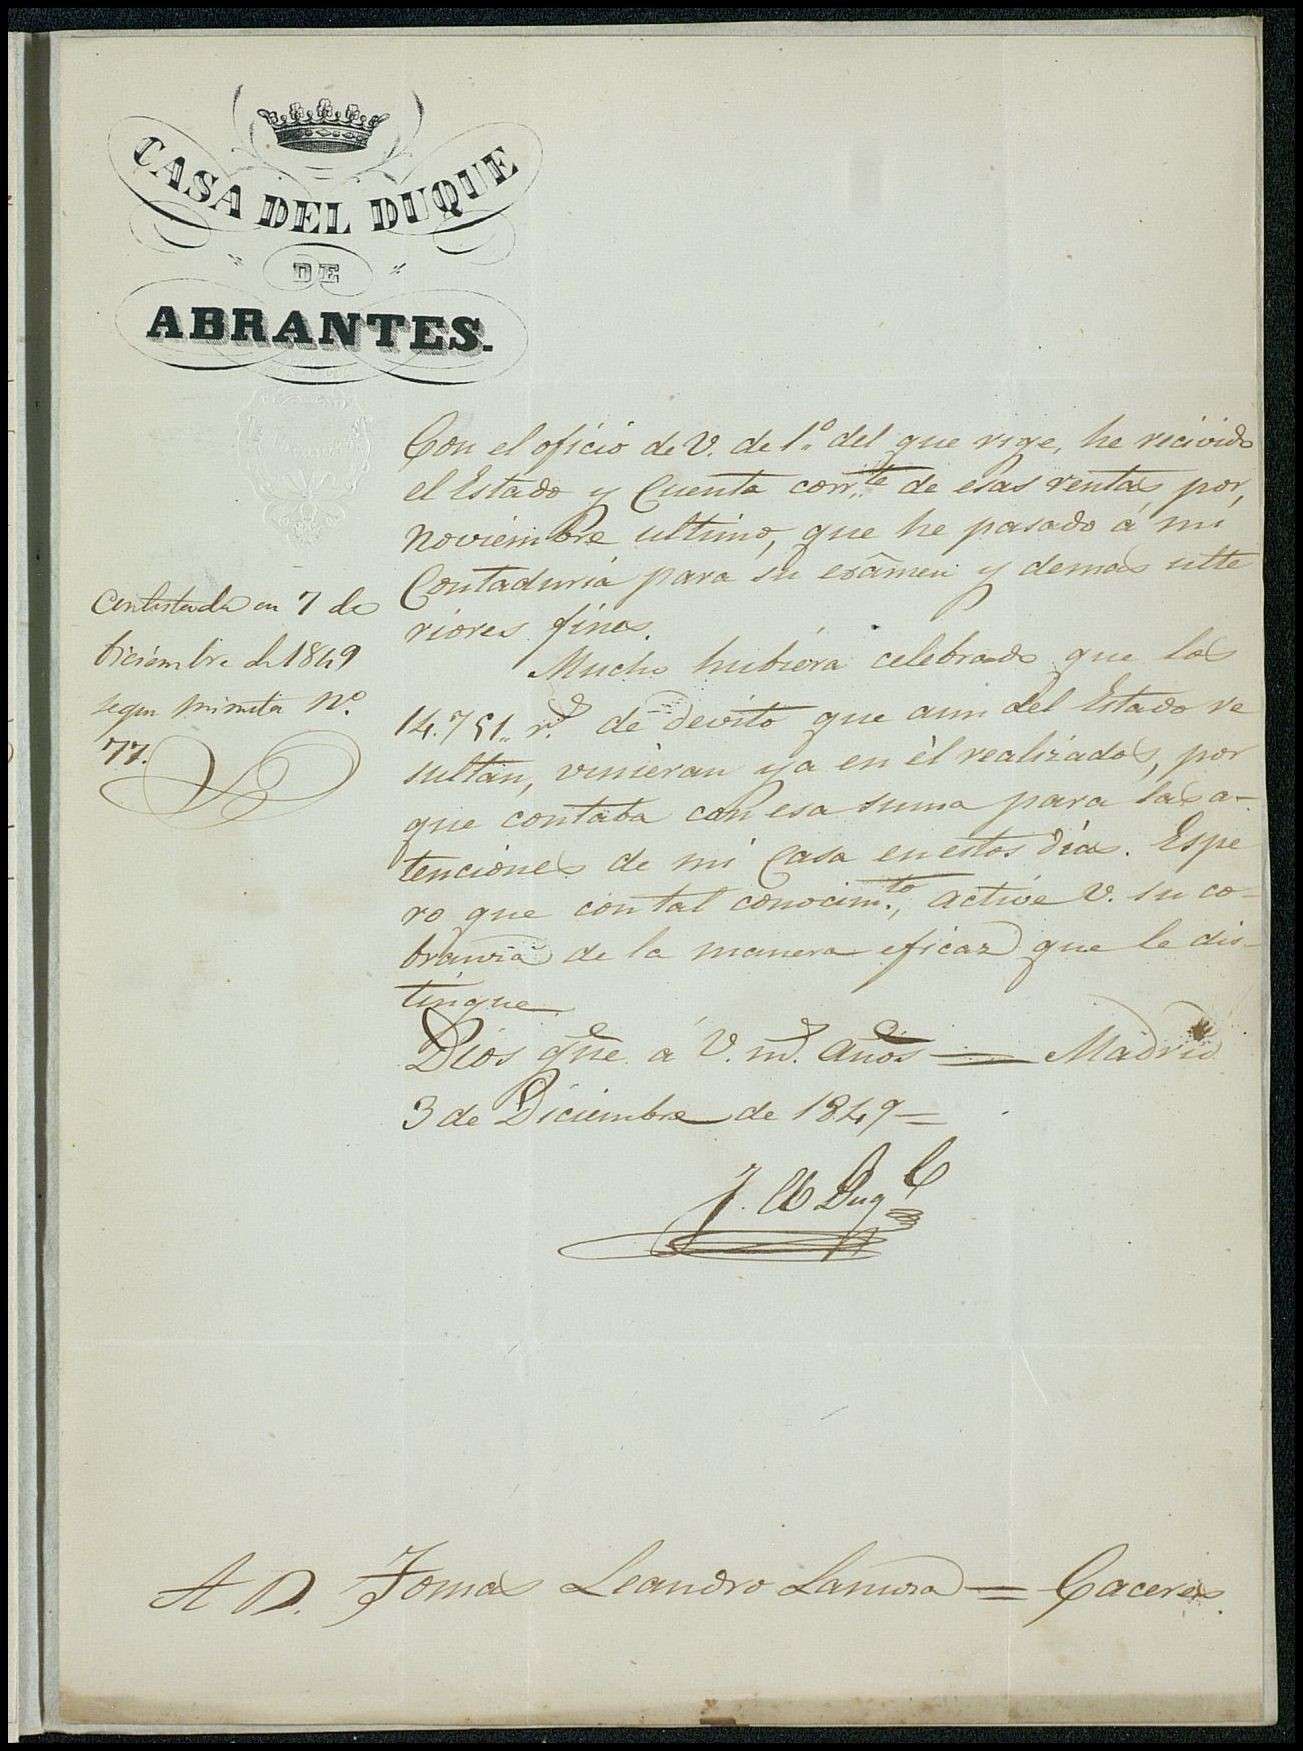 CASA DEL DUQUE
DE
ABRANTES.
Con el oficio de V. de 1.º del que rige, he recivido
el Estado y Cuenta corr.te de esas rentas, por,
Noviembre ultimo, que he pasado á mi
Contaduria para su exâmen y demas ulte
riores fines.
Mucho hubiera celebrado que los
14.751,, r.s de devito que aun del Estado re
sultan, vinieran ya en él realizados, por
que contaba con esa suma para las a-
tenciones de mi Casa en estos dias. Espe
ro que con tal conocim.to, active V. su co-
branza de la manera eficaz que le dis-
tingue.
Dios gue á V. m.s años = Madrid
3 de Diciembre de 1849 =
Contestada en 7 de
Diciembre de 1849
segun minuta N.º
77.
J. El Duq.
A D. Tomas Leandro Lamora = Caceres.